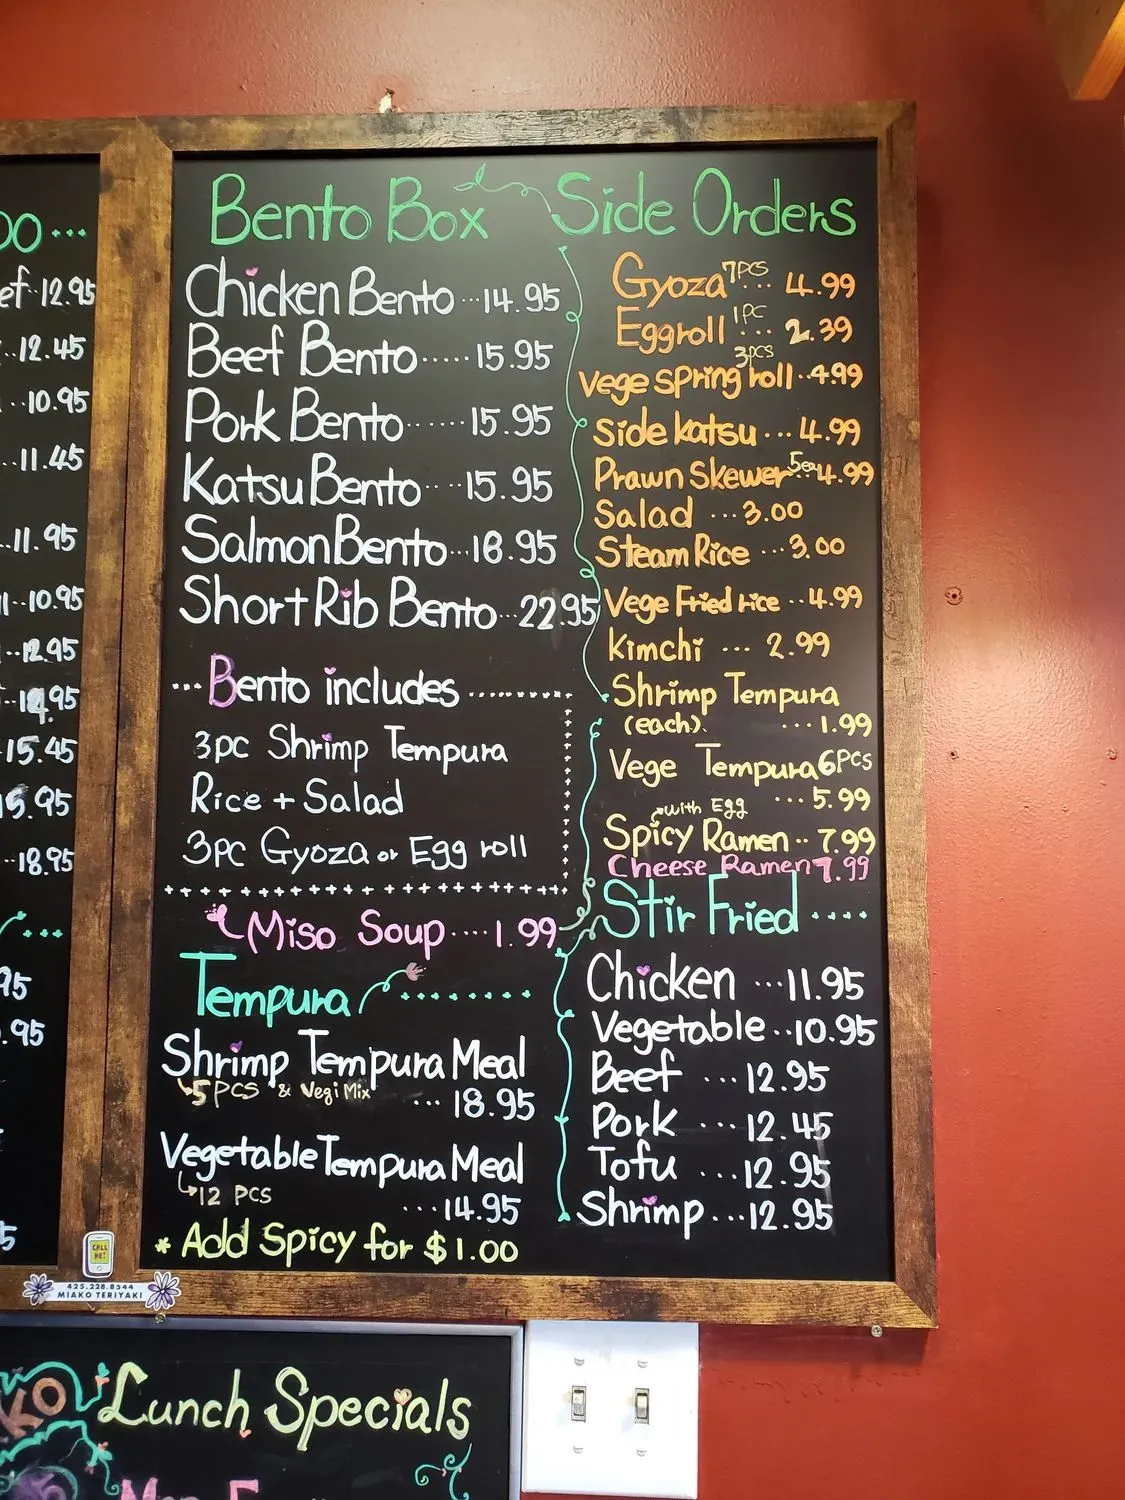 oo...
ef..12.95
..12.45
..10.95
...11.45
..11.95
..10.95
..12.95
..15.45
15.95
..18.95
...
95
.95
5
Bento Box
Chicken Bento...14.95
Beef Bento.....15.95
Pork Bento......15.95
Katsu Bento....15.95
Salmon Bento...18.95
Short Rib Bento..22.95
...Bento includes.........
3pc Shrimp Tempura
Rice + Salad
3pc Gyoza or Egg roll
Miso Soup....1.99
Tempura
Shrimp Tempura Meal
5 PCS & Vegi Mix ...18.95
Vegetable Tempura Meal
12 PCS
...14.95
* Add Spicy for $1.00
Side Orders
Gyoza 7PCS ... 4.99
Eggroll 1PC ... 2.39
3pcs
Vege Spring roll..4.99
Side Katsu...4.99
Prawn Skewer 5ea..4.99
Salad ...3.00
Steam Rice ...3.00
Vege Fried rice..4.99
Kimchi ... 2.99
Shrimp Tempura
(each). ...1.99
Vege Tempura 6PCS
...5.99
with Egg
Spicy Ramen..7.99
Cheese Ramen 7.99
Stir Fried ....
Chicken ...11.95
Vegetable..10.95
Beef ...12.95
Pork ...12.45
Tofu ...12.95
Shrimp...12.95
CALL ME!
425.228.8544
MIAKO TERIYAKI
KO
Lunch Specials